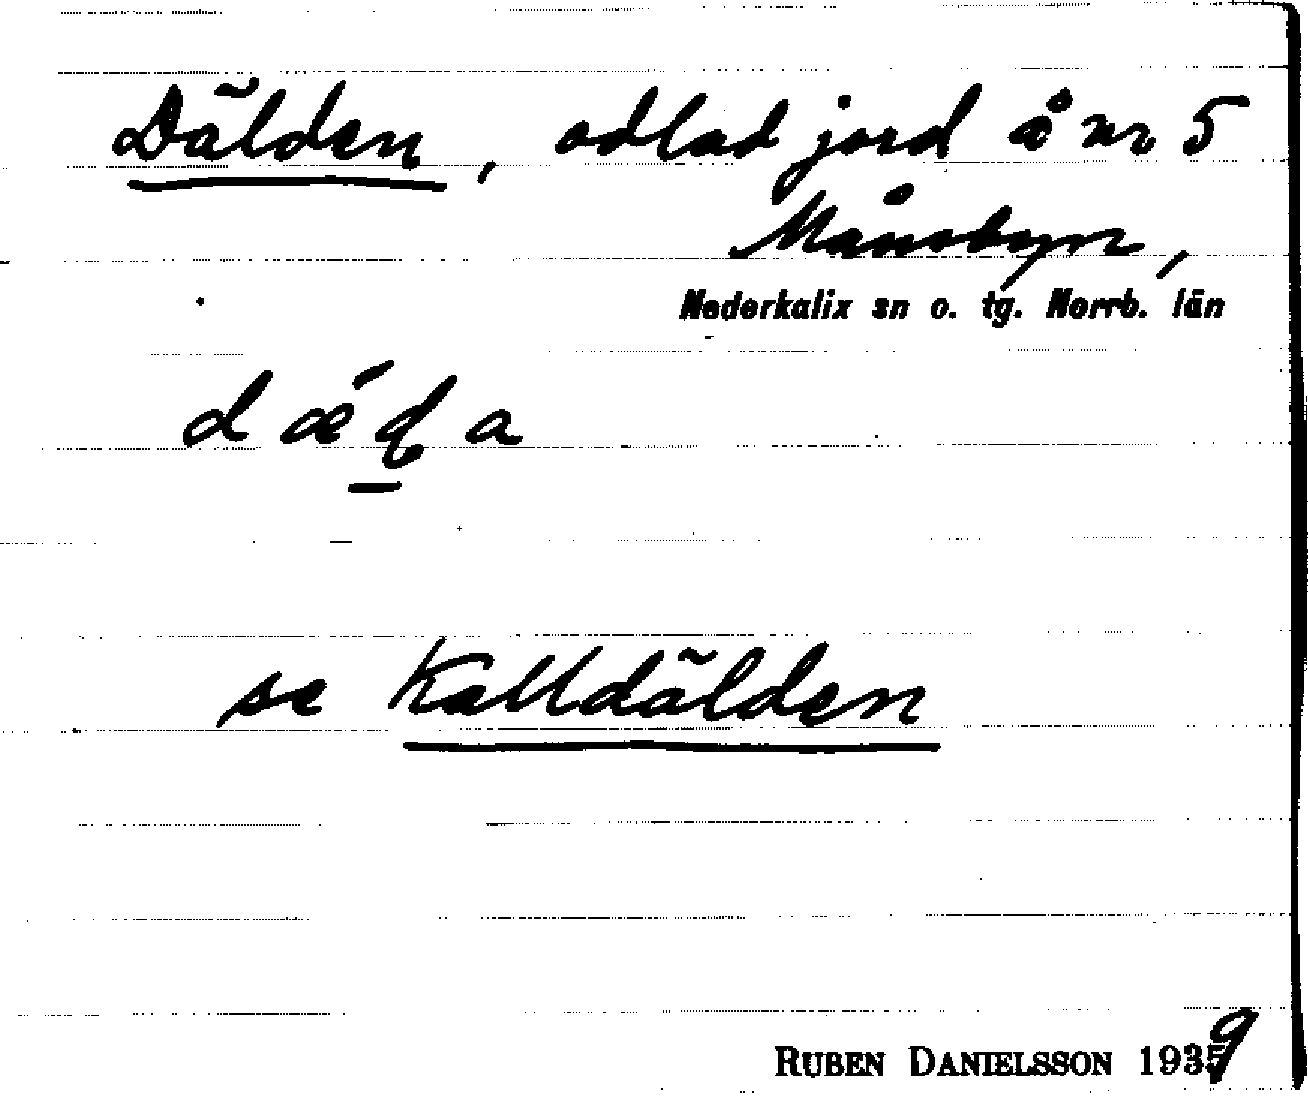 Dälden, odlad jord å nr 5
Månsbyn,
Nederkalix sn o. tg. Norrb. län
se Kalldälden
RUBEN DANIELSSON 1939